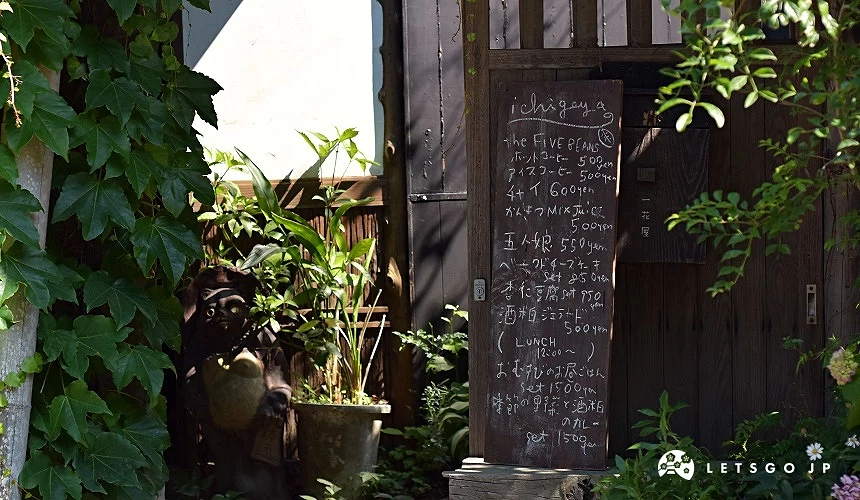 ichigeya
the FIVE BEANS
ホットコーヒー 500yen
アイスコーヒー 500yen
チャイ 600yen
かんきつMIXジュース
500yen
五人娘 550yen
ベークドチーズケーキ
set 850yen
杏仁豆腐set 950yen
酒粕ジェラード
500yen
( LUNCH
12:00~ )
おむすびのお昼ごはん
set 1500yen
季節の野菜と酒粕
のカレー
set 1500yen
一花屋
LETSGO JP